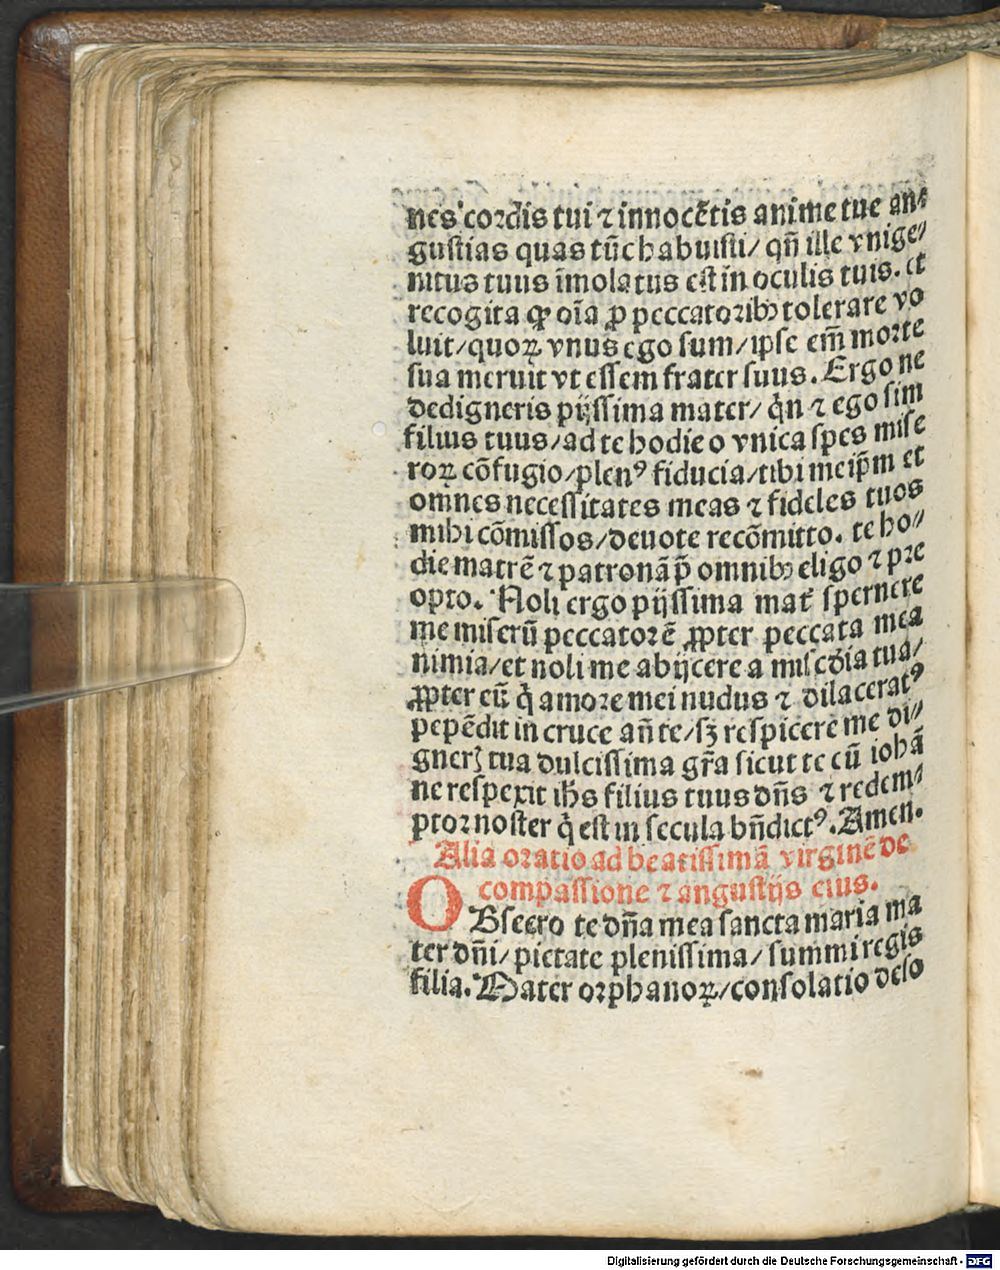 nes cordis tui ⁊ innocẽtis anime tue an⸗
gustias quas tũc habuisti/ qñ ille vnige⸗
nitus tuus ĩmolatus est in oculis tuis. et
recogita ꝙ oĩa ꝓ peccatoribꝰ tolerare vo
luit/quoꝝ vnus ego sum/ipse em̃ morte
sua meruit vt essem frater suus. Ergo ne
dedigneris pijssima mater/ qͥn ⁊ ego sim
filius tuus/ad te hodie o vnica spes mise
roꝝ cõfugio/plenꝰ fiducia/tibi meip̃m et
omnes necessitates meas ⁊ fideles tuos
mihi cõmissos/deuote recõmitto. te ho⸗
die matrẽ ⁊ patronã p̃ omnibꝰ eligo ⁊ pre
opto. Noli ergo pijssima mat̃ spernere
me miserũ peccatorẽ ꝓpter peccata mea
nimia/et noli me abijcere a mĩscđia tua/
ꝓpter eũ qͥ amore mei nudus ⁊ dilaceratꝰ
pepẽdit in cruce añ te/sꝫ respicere me di⸗
gnerꝭ tua dulcissima gr̃a sicut te cũ iohã
ne respexit ihs̃ filius tuus dñs ⁊ redem⸗
ptor noster qͥ est in secula bñdictꝰ. Amen.
Alia oratio ad beatissimã virginẽ de
compassione ⁊ angustijs eius.
OBsecro te dña mea sancta maria ma
ter dñi/ pietate plenissima/ summi regis
filia. Mater orphanoꝝ/consolatio deso
Digitalisierung gefördert durch die Deutsche Forschungsgemeinschaft - DFG